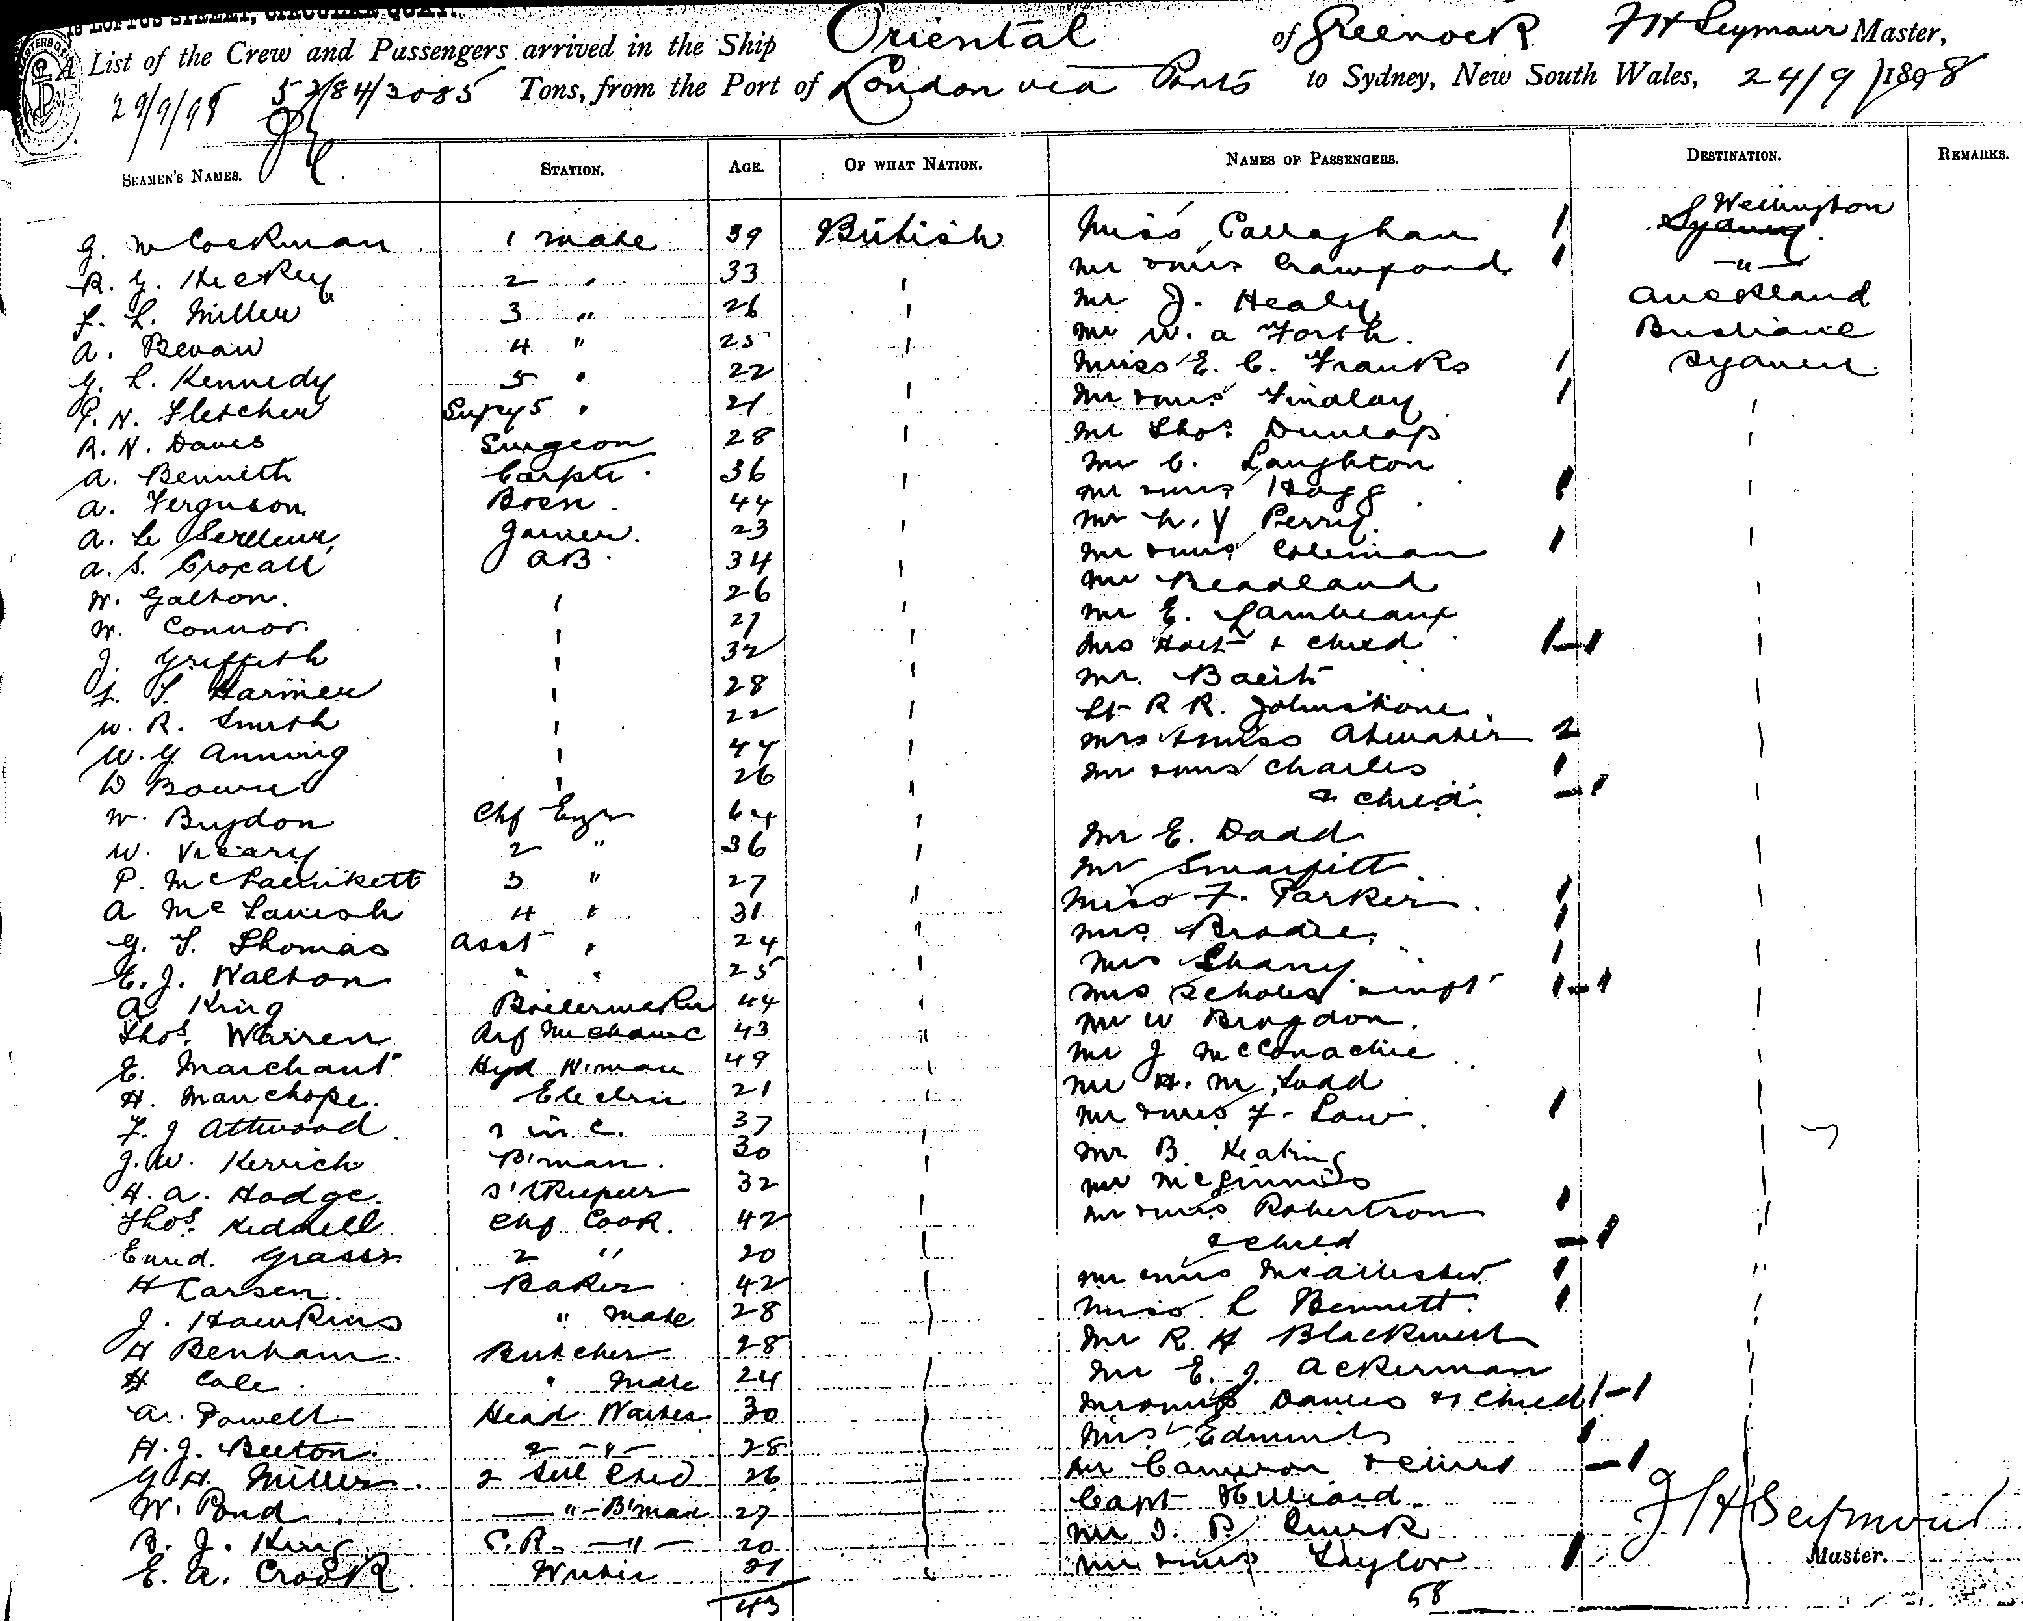 18 LOFTUS STREET, CIRCULAR QUAY.
A List of the Crew and Passengers arrived in the Ship Oriental of Greenock F H Seymour Master,
29/9/98 5284/3085 Tons, from the Port of London via Ports to Sydney, New South Wales, 24/9/1898
SEAMEN'S NAMES. STATION. AGE. OF WHAT NATION. NAMES OF PASSENGERS. DESTINATION. REMARKS.
Wellington
G. W Cockman 1 mate 39 British Miss Callaghan 1 Sydney
R. G. Hickey 2 " 33 " Mr & Mrs Crawford 1 "
F. L. Miller 3 " 26 " Mr J. Healy Auckland
A. Bevan 4 " 25 " Mr W. A Forth. Brisbane
G. L. Kennedy 5 " 22 " Miss E. C. Franks 1 Sydney
P. N. Fletcher Supy 5 " 21 " Mr & Mrs Findlay 1 "
R. N. Davis Surgeon 28 " Mr Thos. Dunlap "
A. Bennett Carptr. 36 " Mr C. Laughton
A. Ferguson Bosn. 44 " Mr & Mrs Hogg 1 "
A. Le Joiner. 23 " Mr Perry.
A. S. Croxall AB. 34 " Mr & Mrs Coleman 1 "
W. Galton. " 26 " Mr Beadland "
W. Connor. " 27 " Mr E. Lambeaux "
J. Griffith " 32 " Mrs Holt & child 1-1 "
S. Harmer " 28 " Mr.
W. R. Smith " 22 " Lt R R. Johnstone.
W. G Anning " 44 " Mrs & Miss Atwater 2 "
D Bowie " 26 " Mr & Mrs Charles 1
& child -1
W. Brydon Chf Engr 64 " Mr E. Dadd
W. Vicary 2 " 36 " Mr Smarfitt
P. 3 " 27 " Miss F. Parker. 1
A McTavish 4 " 31 " Mrs Brodie. 1
G. S. Thomas Asst " 24 " Mrs 1
E. J. Walton " " 25 " Mrs Scholes & inft 1-1
A. King Boilermaker 44 " Mr W Brogdon.
Thos. Warren Ref Mechanic 43 " Mr J McConachie
E. Marchant Hyd W.man 49 " Mr H. M. Ladd
H. Manchope. Electric 21 " Mr & Mrs F. Law. 1
F. J Attwood in C. 37 " Mr B. Keating
J. W. Kerrich B'man. 30 " Mr McGinnis
H. A. Hodge. S'tkeeper 32 " Mr & Mrs Robertson 1
Thos. Kidnell Chf Cook. 42 " & child -1
Emd. Grass 2 " 20 " Mr & Mrs McAllister 1
H Larsen. Baker 42 " Miss L Bennett. 1
J. Hawkins " mate 28 " Mr R H
H Benham. Butcher 28 Mr E. J. Ackerman
H Cole " Mate 24 " Mr & Mrs Davies & child 1-1
A. Powell Head Waiter 30 " Mrs Edmunds 1
H. J. Beeton. 2 " 28 " Mr Cameron & child -1
G H Miller 2 Sal 26 " Capt Hilliard.
W. Pond " B'man 27 " Mr
B. J. King S.R. " 20 " Mr & Mrs Taylor 1
E. A. Crook Writer 21 "
43 58
F H Seymour
Master.